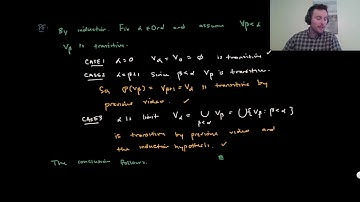 Pf: By induction. Fix α ∈ Ord and assume ∀β<α
V_β is transitive.
CASE 1 α=0 V_α = V_0 = ∅ is transitive ✓
CASE 2 α=β+1. Since β<α V_β is transitive.
So P(V_β) = V_{β+1} = V_α is transitive by
previous video. ✓
CASE 3 α is limit V_α = ⋃_{β<α} V_β = ⋃{V_β : β<α}
is transitive by previous video and
the induction hypothesis. ✓
The conclusion follows.